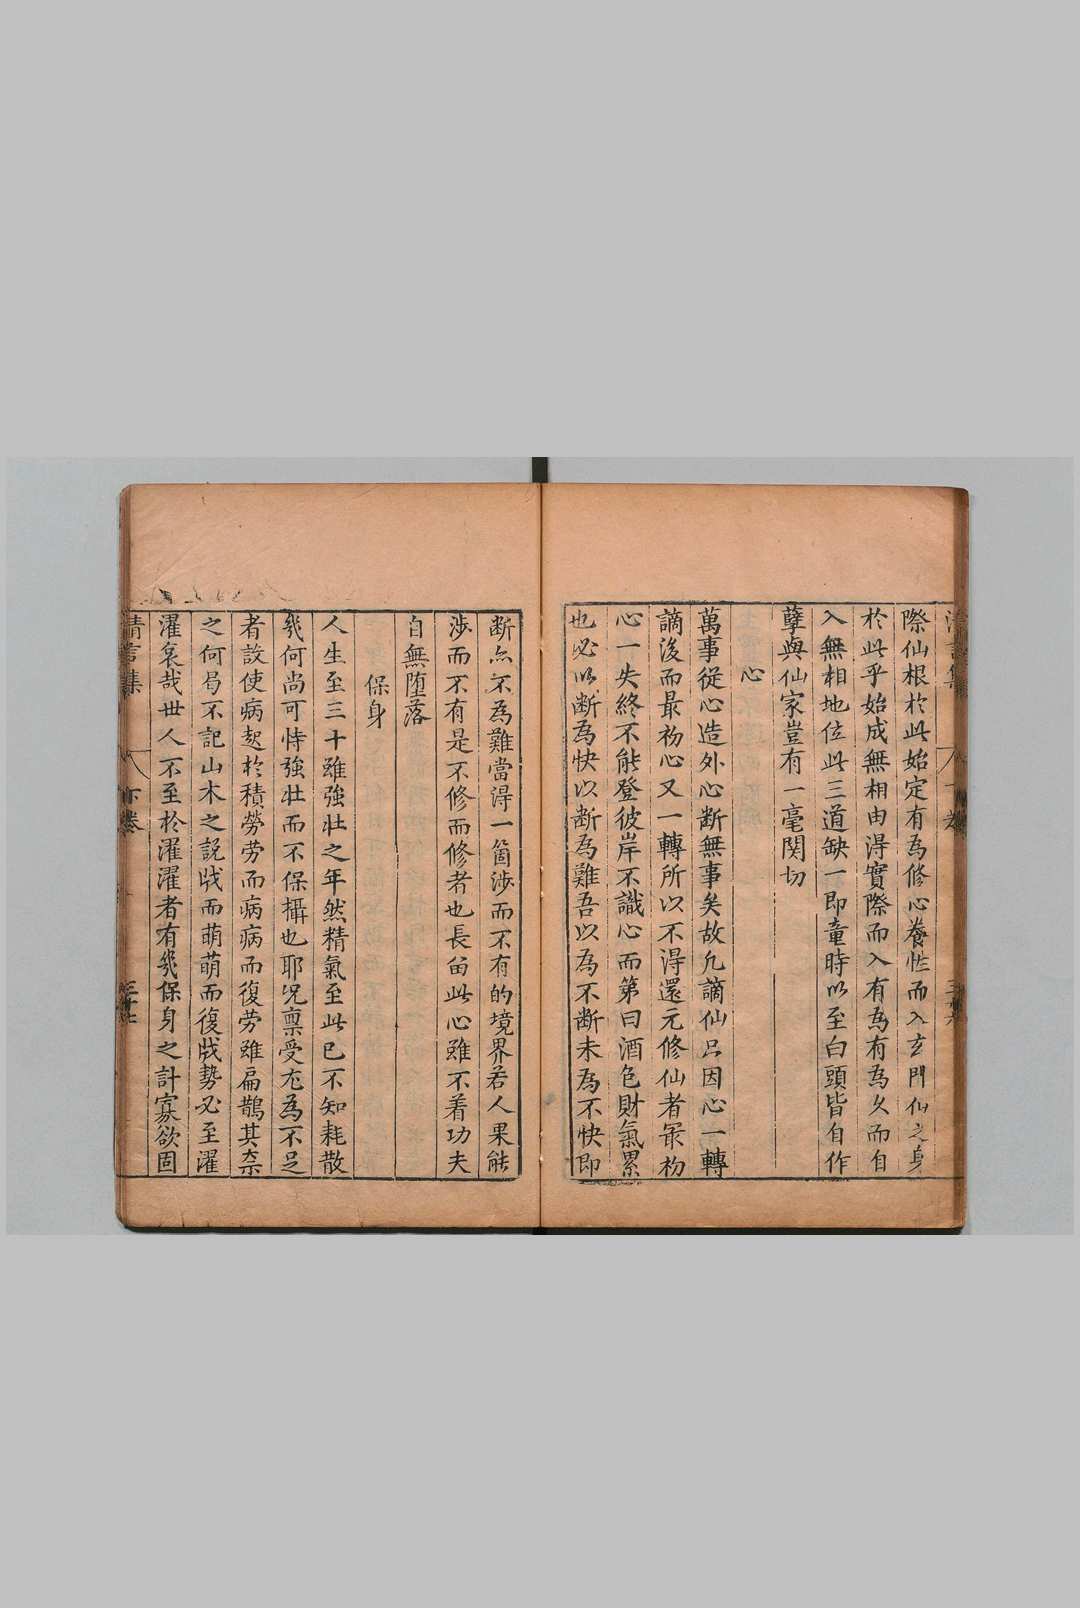 際仙根於此始定有為修心養性而入玄門仙之身
於此乎始成無相由得實際而入有為有為久而自
入無相地位此三道缺一即童時以至白頭皆自作
孽與仙家豈有一毫関切
心
萬事從心造外心断無事矣故凢謫仙只因心一轉
謫後而最初心又一轉所以不得還元修仙者最初
心一失終不能登彼岸不識心而第曰酒色財氣累
也必以断為快以断為難吾以為不断未為不快即
断亦不為難當得一箇渉而不有的境界若人果能
渉而不有是不修而修者也長畄此心雖不着功夫
自無堕落
保身
人生至三十雖強壮之年然精氣至此已不知耗散
幾何尚可恃強壮而不保攝也耶况稟受尪為不足
者設使病起於積勞勞而病病而復勞雖扁鵲其奈
之何曷不記山木之説戕而萌萌而復戕勢必至濯
濯哀哉世人不至於濯濯者有幾保身之計寡欲固
清言集
下卷
三十七